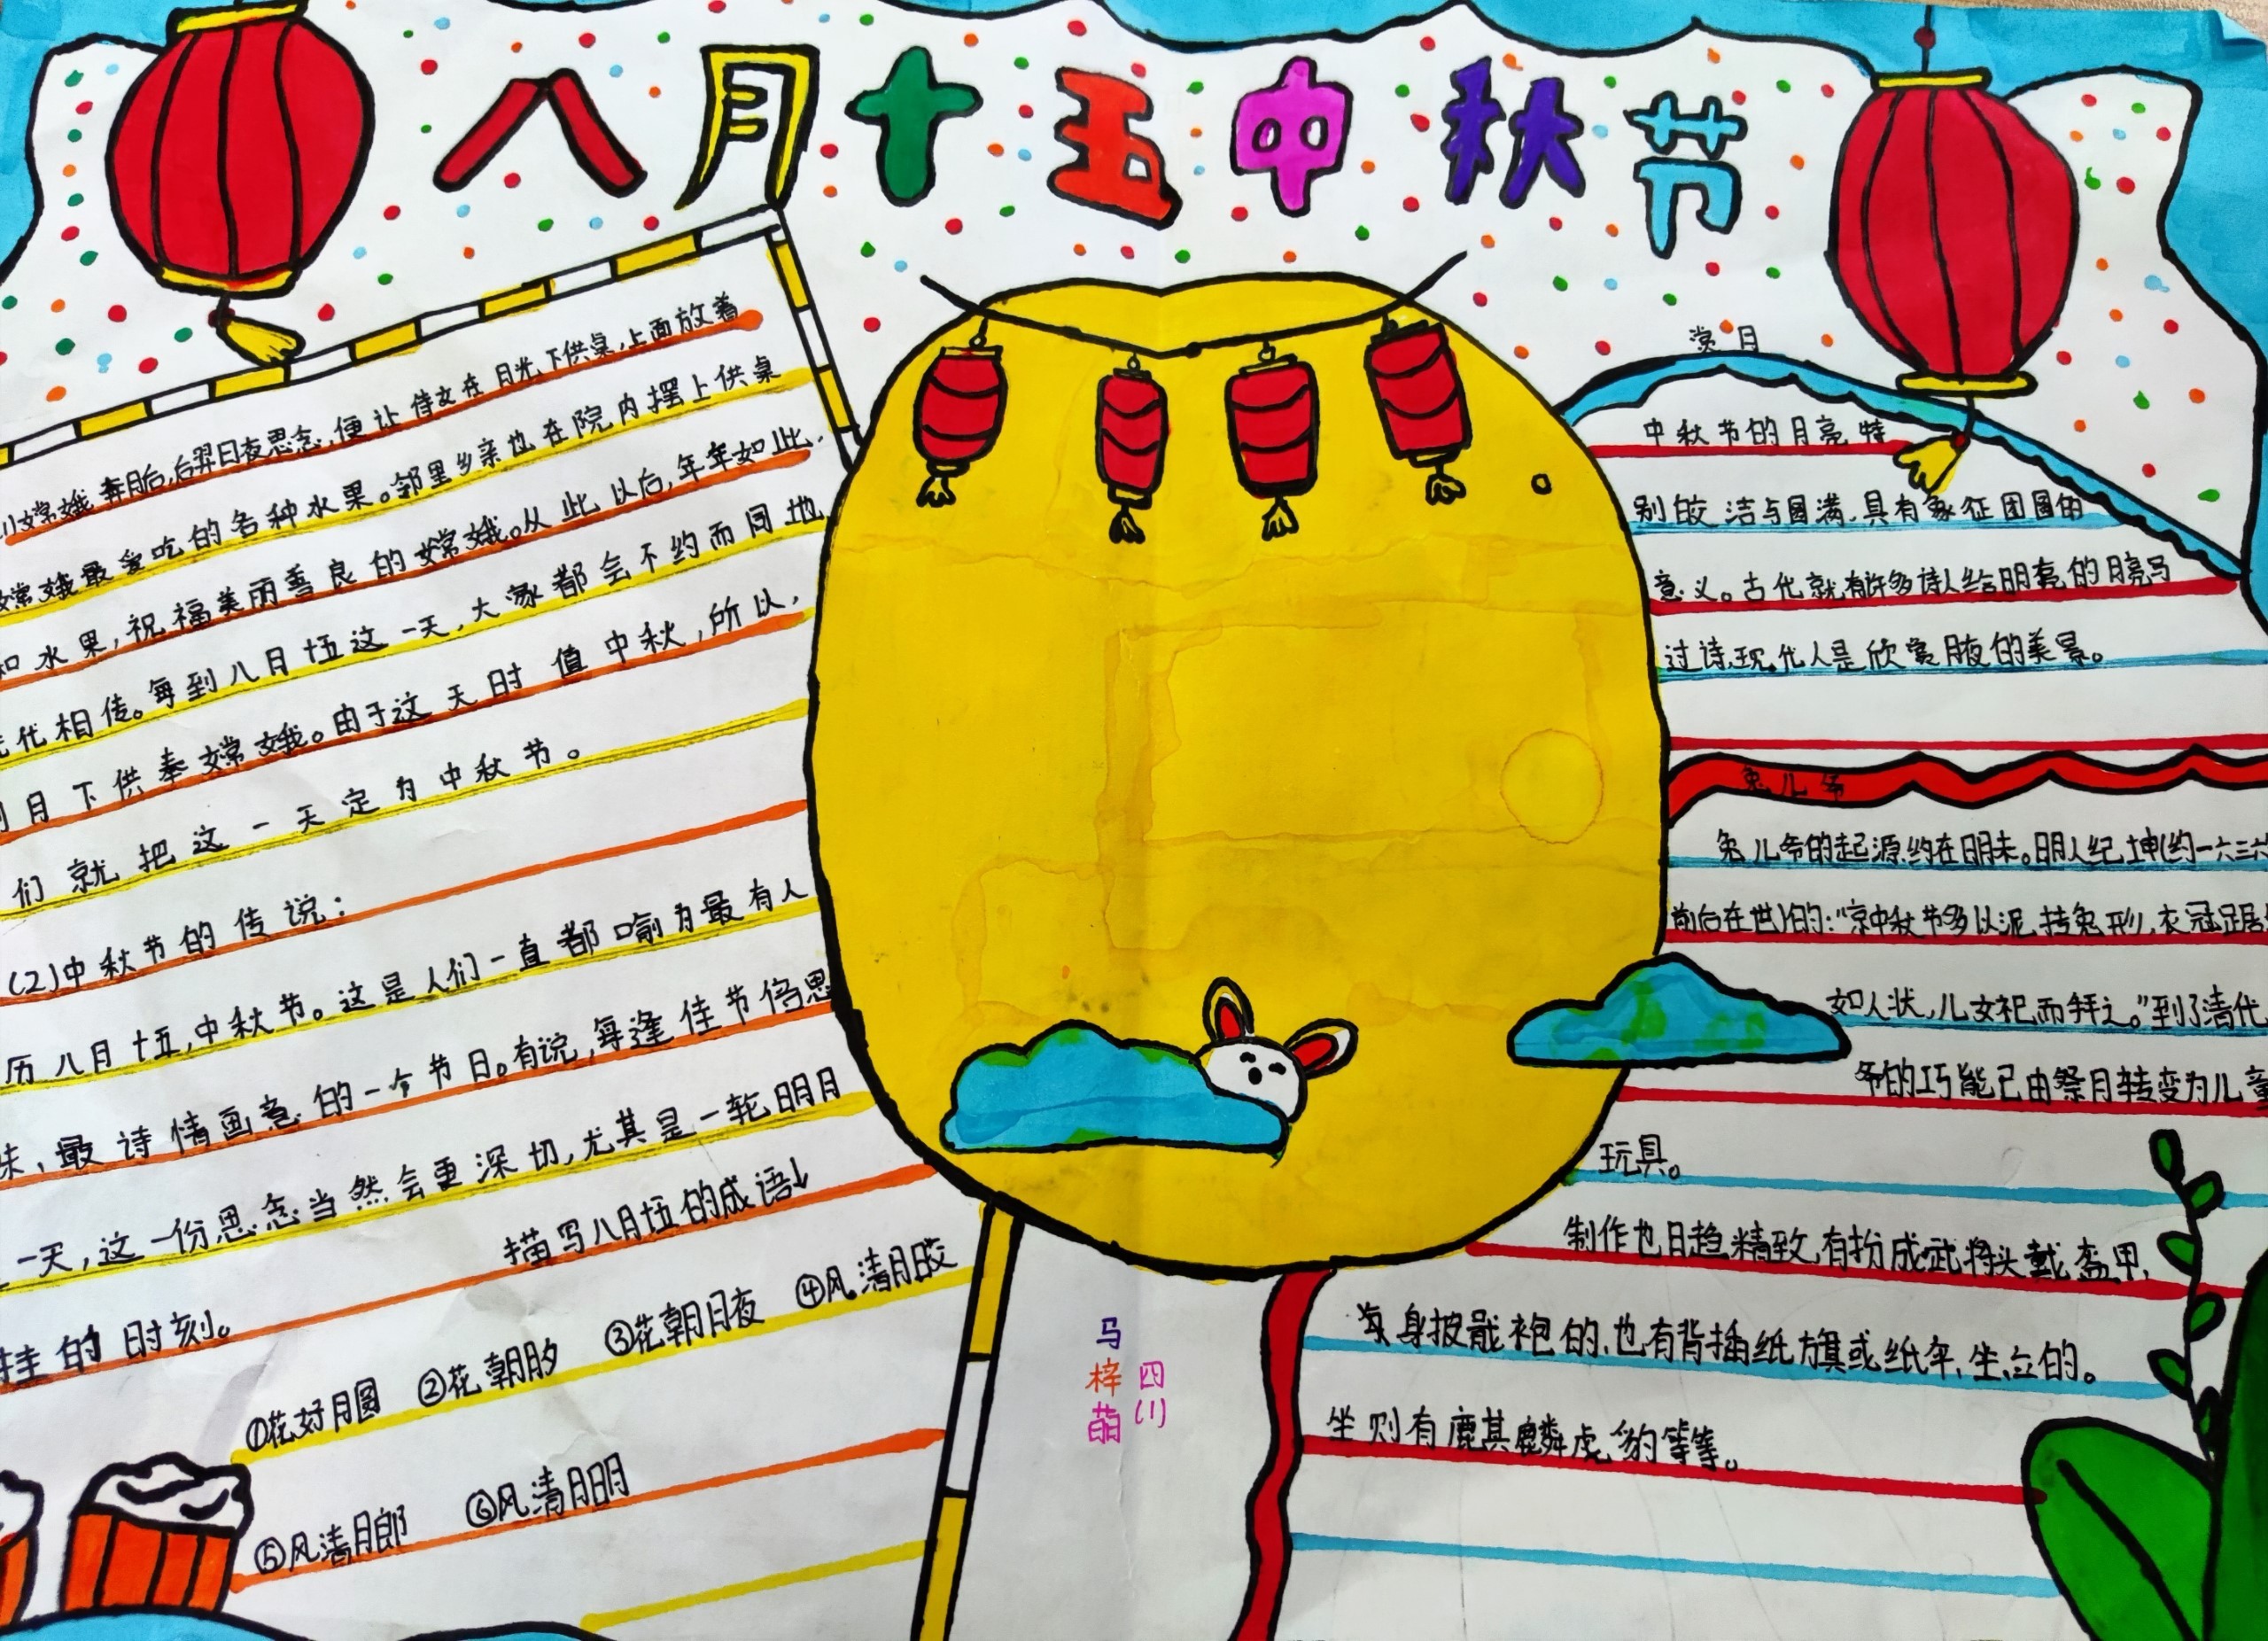 八月十五中秋节
嫦娥奔月后,后羿日夜思念,便让侍女在月光下供桌,上面放着
嫦娥最爱吃的各种水果。邻里乡亲也在院内摆上供桌
和水果,祝福美丽善良的嫦娥。从此以后,年年如此,
代相传。每到八月十五这一天,大家都会不约而同地
月下供奉嫦娥。由于这天时值中秋,所以,
们就把这一天定为中秋节。
(2)中秋节的传说:
历八月十五,中秋节。这是人们一直都喻为最有人
味、最诗情画意的一个节日。有说,每逢佳节倍思
一天,这一份思念当然会更深切,尤其是一轮明月
挂的时刻。
描写八月十五的成语↓
①花好月圆 ②花朝月夕 ③花朝月夜 ④风清月皎
⑤风清月郎 ⑥风清月明
赏月
中秋节的月亮特
别皎洁与圆满,具有象征团圆的
意义。古代就有许多诗人给明亮的月亮马
过诗,现代人是欣赏月夜的美景。
兔儿爷
兔儿爷的起源约在明末。明人纪坤(约一六三六
前后在世)的:“京中秋节多以泥抟兔形,衣冠踞
如人状,儿女祀而拜之。”到了清代,
爷的巧能已由祭月转变为儿童
玩具。
制作也日趋精致,有扮成武将头戴盔甲,
身披戬袍的、也有背插纸旗或纸伞、坐立的。
坐则有鹿其麟虎、豹等等。
马梓萌
四川